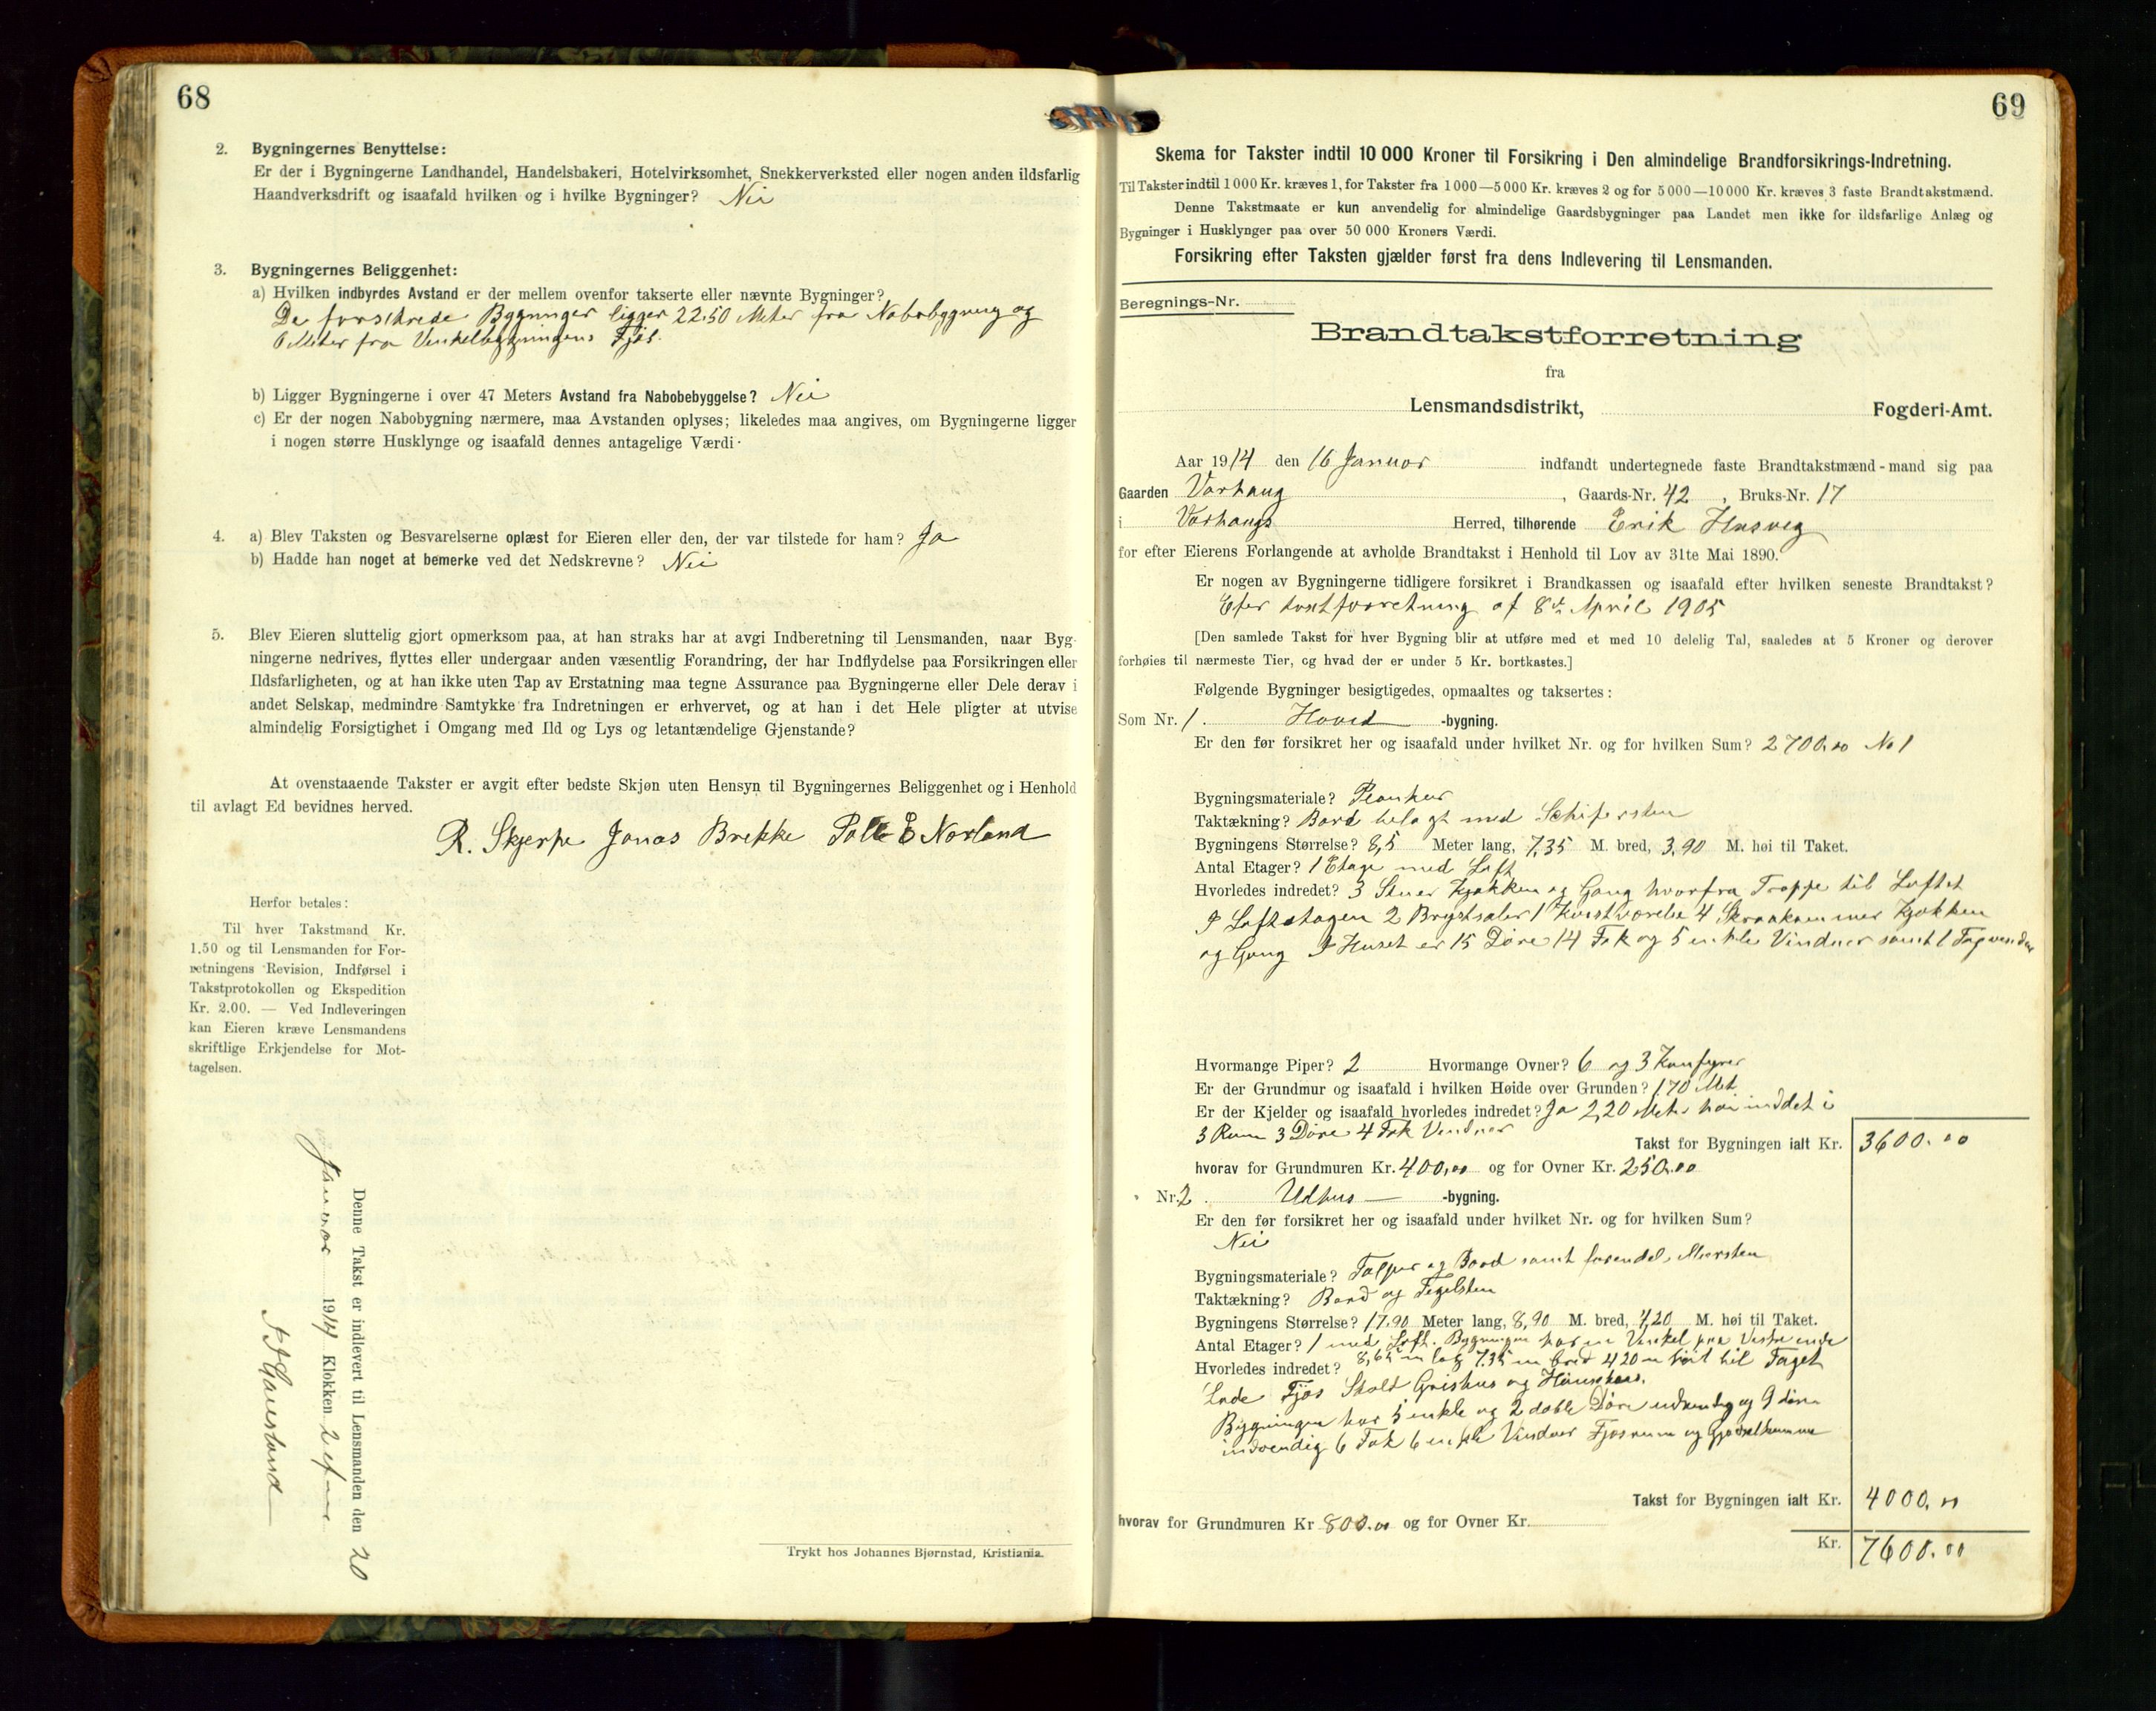 68
2. Bygningernes Benyttelse:
Er der i Bygningerne Landhandel, Handelsbakeri, Hotelvirksomhet, Snekkerverksted eller nogen anden ildsfarlig
Haandverksdrift og isaafald hvilken og i hvilke Bygninger? Nei
3. Bygningernes Beliggenhet:
a) Hvilken indbyrdes Avstand er der mellem ovenfor takserte eller nævnte Bygninger?
De forsikrede Bygninger ligger 22.50 Meter fra Nabobygning og
6 Meter fra Vinkelbygningens Fjøs.
b) Ligger Bygningerne i over 47 Meters Avstand fra Nabobebyggelse? Nei
c) Er der nogen Nabobygning nærmere, maa Avstanden oplyses; likeledes maa angives, om Bygningerne ligger
i nogen større Husklynge og isaafald dennes antagelige Værdi·
4. a) Blev Taksten og Besvarelserne oplæst for Eieren eller den, der var tilstede for ham? Ja
b) Hadde han noget at bemerke ved det Nedskrevne? Nei
5. Blev Eieren sluttelig gjort opmerksom paa, at han straks har at avgi Indberetning til Lensmanden, naar Byg-
ningerne nedrives, flyttes eller undergaar anden væsentlig Forandring, der har Indflydelse paa Forsikringen eller
Ildsfarligheten, og at han ikke uten Tap av Erstatning maa tegne Assurance paa Bygningerne eller Dele derav i
andet Selskap, medmindre Samtykke fra Indretningen er erhvervet, og at han i det Hele pligter at utvise
almindelig Forsigtighet i Omgang med Ild og Lys og letantændelige Gjenstande?
At ovenstaaende Takster er avgit efter bedste Skjøn uten Hensyn til Bygningernes Beliggenhet og i Henhold
til avlagt Ed bevidnes herved.
R. Skjerpe Jonas Brekke E Norland
Herfor betales:
Til hver Takstmand Kr.
1.50 og til Lensmanden for For-
retningens Revision, Indførsel i
Takstprotokollen og Ekspedition
Kr. 2.00. — Ved Indleveringen
kan Eieren kræve Lensmandens
skriftlige Erkjendelse for Mot-
tagelsen.
Denne Takst er indlevert til Lensmanden den 20
Januar 1914 Klokken 2 ef
Trykt hos Johannes Bjørnstad, Kristiania.
69
Skema for Takster indtil 10 000 Kroner til Forsikring i Den almindelige Brandforsikrings-Indretning.
Til Takster indtil 1 000 Kr. kræves 1, for Takster fra 1 000—5 000 Kr. kræves 2 og for 5 000—10 000 Kr. kræves 3 faste Brandtakstmænd.
Denne Takstmaate er kun anvendelig for almindelige Gaardsbygninger paa Landet men ikke for ildsfarlige Anlæg og
Bygninger i Husklynger paa over 50 000 Kroners Værdi.
Forsikring efter Taksten gjælder først fra dens Indlevering til Lensmanden.
Beregnings-Nr.
Brandtakstforretning
fra
Lensmandsdistrikt, Fogderi-Amt.
Aar 1914 den 16 Januar indfandt undertegnede faste Brandtakstmænd-mand sig paa
Gaarden Varhaug, Gaards-Nr. 42, Bruks-Nr. 17
i Varhaugs Herred, tilhørende Erik Husveg
for efter Eierens Forlangende at avholde Brandtakst i Henhold til Lov av 31te Mai 1890.
Er nogen av Bygningerne tidligere forsikret i Brandkassen og isaafald efter hvilken seneste Brandtakst?
Efter of 8de April 1905
[Den samlede Takst for hver Bygning blir at utføre med et med 10 delelig Tal, saaledes at 5 Kroner og derover
forhøies til nærmeste Tier, og hvad der er under 5 Kr. bortkastes.]
Følgende Bygninger besigtigedes, opmaaltes og taksertes:
Som Nr. 1. Hoved -bygning.
Er den før forsikret her og isaafald under hvilket Nr. og for hvilken Sum? 2700.00 No 1
Bygningsmateriale? Plankur
Taktækning? Bord belagt med Schifersten
Bygningens Størrelse? 8,5 Meter lang, 7,35 M. bred, 3,90 M. høi til Taket.
Antal Etager? 1 Etage med Loft
Hvorledes indredet? 3 Stuer Kjøkken og Gang hvorfra Trappe til Loftet
I Loftetagen 2 Brystsaler 1 Kvistværelse 4 Skraakammer Kjøkken
og Gang I Huset er 15 Døre 14 Fak og 5 enkle Vinduer samt 1 Tagvindue
Hvormange Piper? 2 Hvormange Ovner? 6 og 3 Komfyrer
Er der Grundmur og isaafald i hvilken Høide over Grunden? 1,70 Met
Er der Kjelder og isaafald hvorledes indredet? Ja 2,20 Meter høi inddelt i
3 Rum 3 Døre 4 Fak Vinduer
Takst for Bygningen ialt Kr. 3600.00
hvorav for Grundmuren Kr. 400,00 og for Ovner Kr. 250.00
Nr. 2. Udhus -bygning.
Er den før forsikret her og isaafald under hvilket Nr. og for hvilken Sum?
Nei
Bygningsmateriale? og Bord samt Mursten
Taktækning? Bord og Tegelsten
Bygningens Størrelse? 17.90 Meter lang, 8,90 M. bred, 4,20 M. høi til Taket.
Antal Etager? 1 med Loft. Bygningen har en Vinkel paa Vestre ende
Hvorledes indredet? 8,65 m lag 7.35 m bred 4 20 m høit til Taget
Lade Fjøs Stald Grishus og Hønsehus.
Bygningen har 5 enkle og 2 doble Døre udvendig og 9 døre
indvendig 6 Fak 6 enkle Vinduer Fjøsrum og Gjødselkummer
Takst for Bygningen ialt Kr. 4000.00
hvorav for Grundmuren Kr 800.00 og for Ovner Kr.
Kr. 7600.00